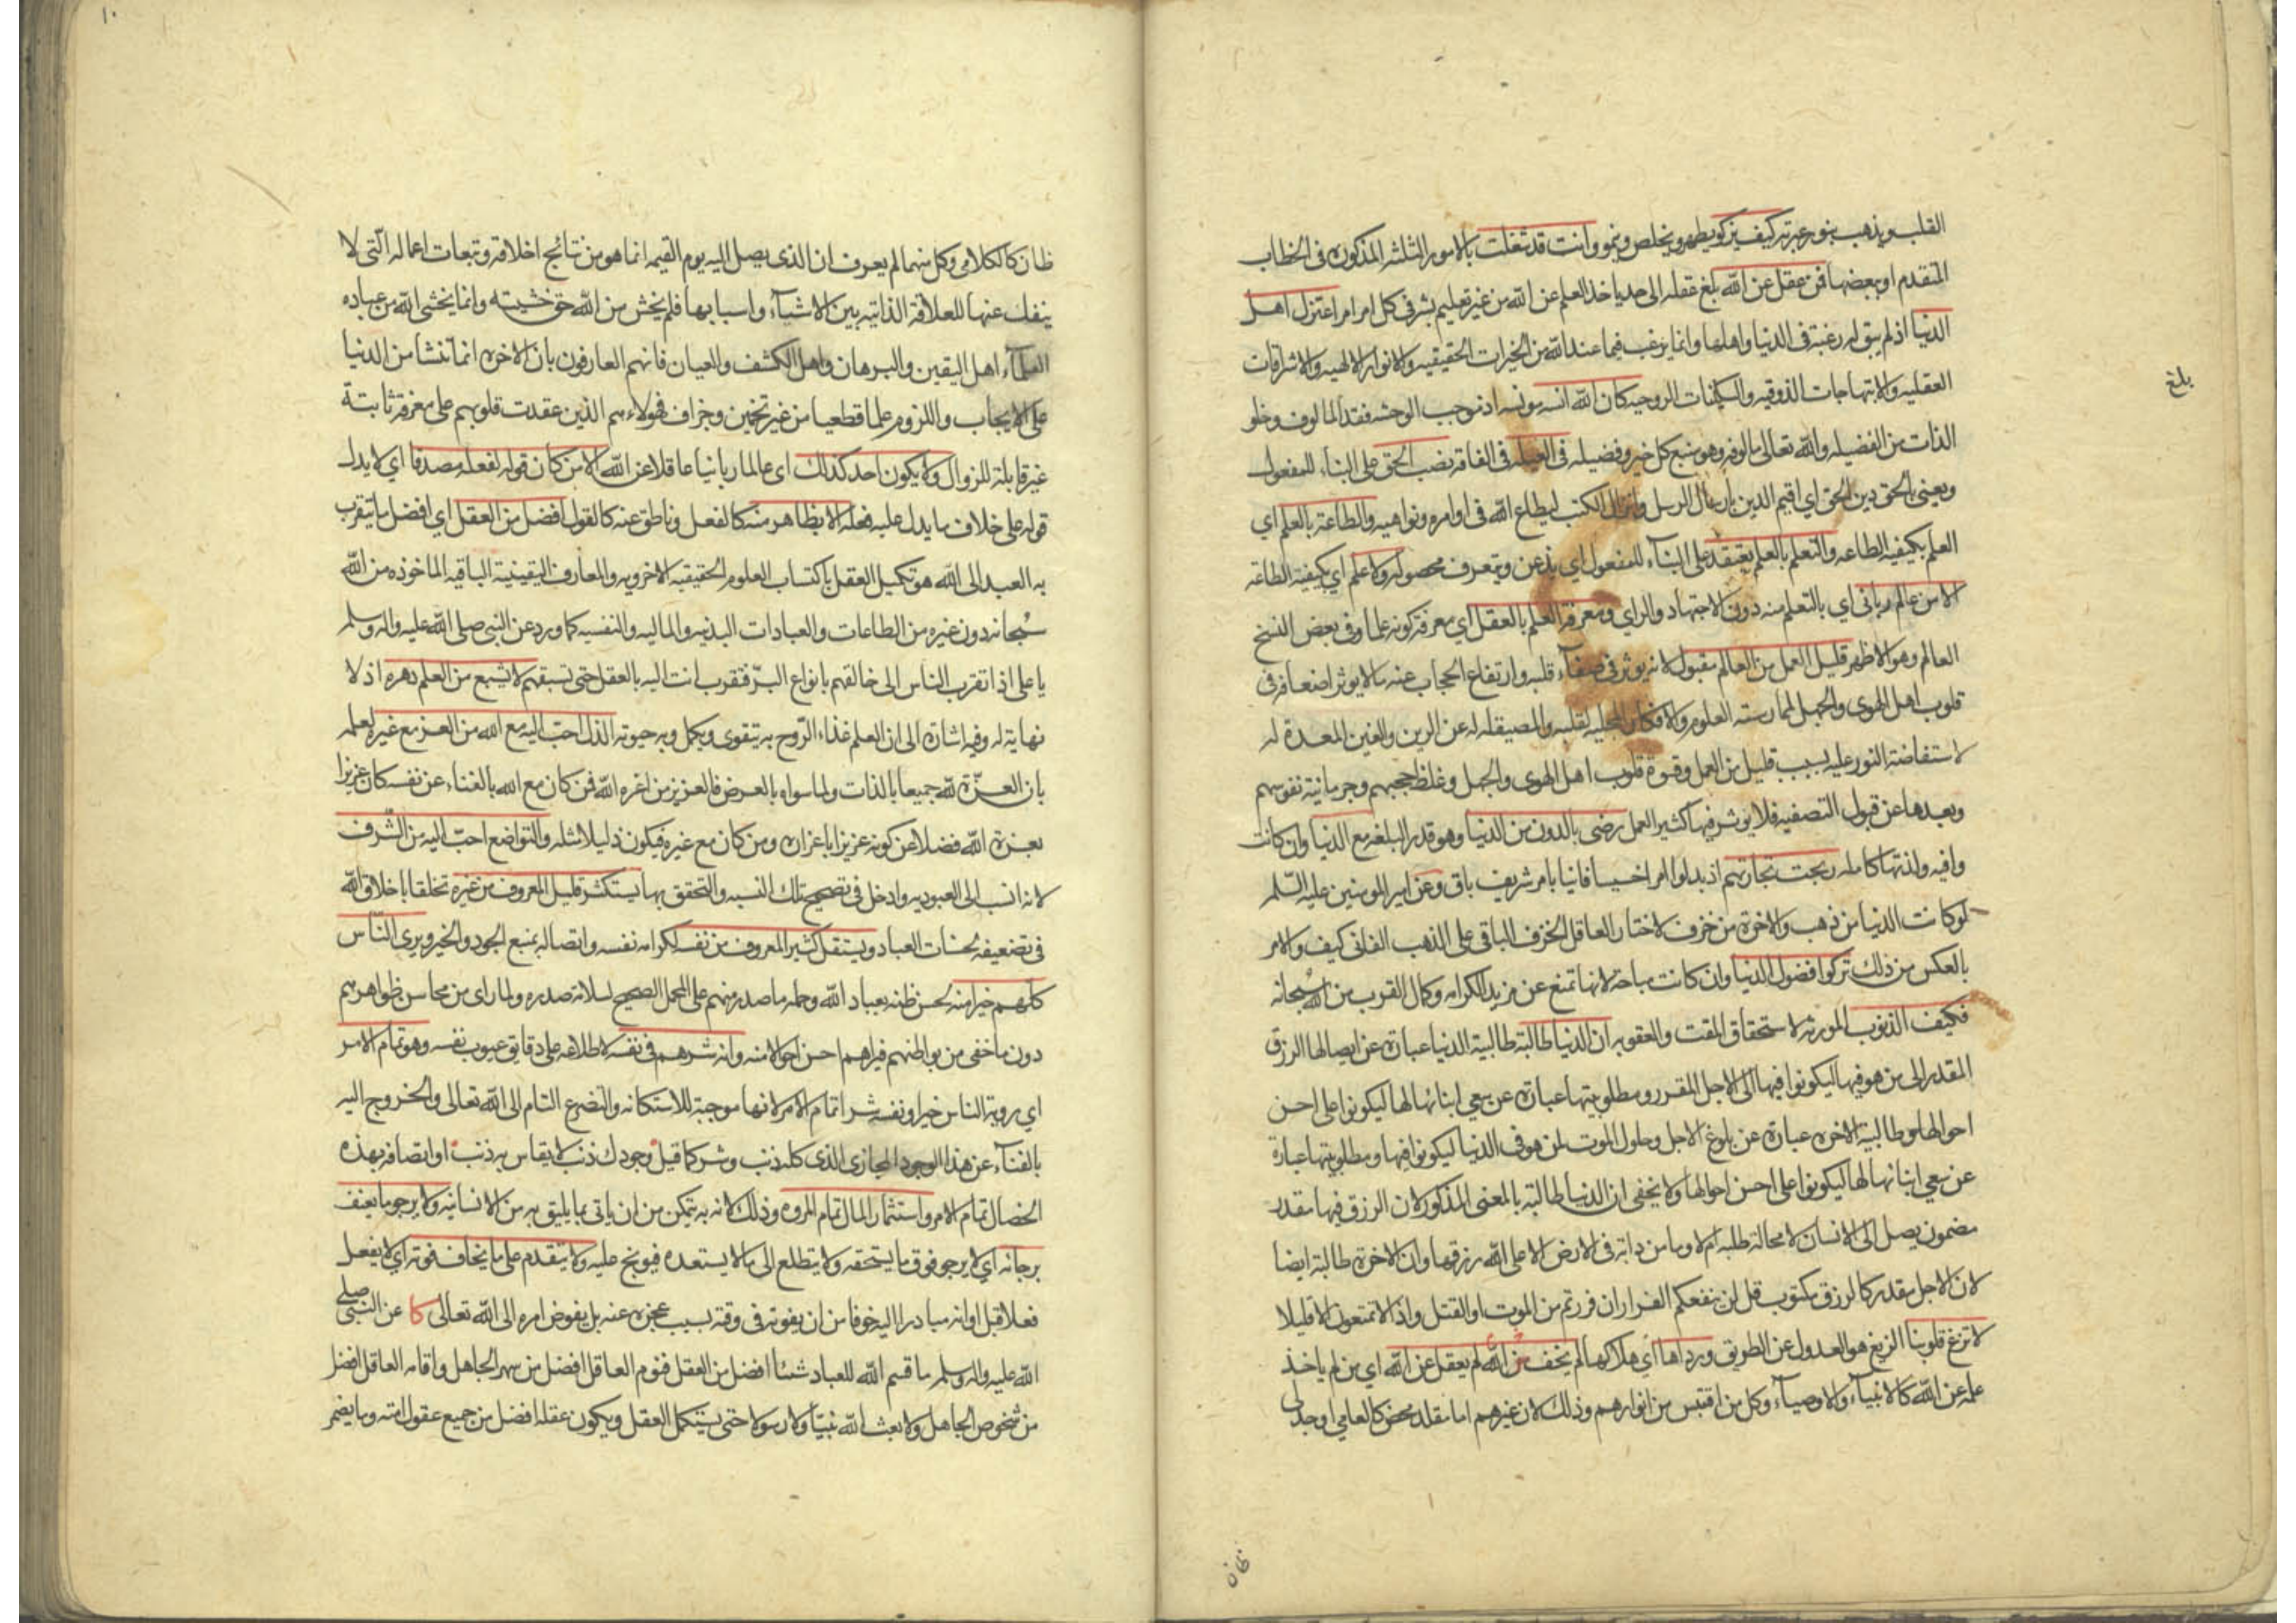 القلب ويذهب بنور عبرته كيف يزكو يطهر ويخلص وينمو وانت قد شغلت بالامور الثلثة المذكورة فى الخطاب
المتقدم او ببعضها فمن عقل عن الله بلغ عقله الى حد ياخذ العلم عن الله من غير تعليم بشر فى كل امر امر اعتزل اهل
الدنيا اذ لم يبق له رغبة فى الدنيا واهلها وانما يرغب فيما عند الله من الخيرات الحقيقيه والانوار الالهيه والاشراقات
العقليه والابتهاجات الذوقيه والسكينات الروحيه كان الله انسه مونسه اذ موجب الوحشه فقد المالوف وخلو
الذات من الفضيله والله تعالى مالوفه وهو منبع كل خير وفضيله فى العيله فى الفاقه نصب الحق على البناء للمفعول
ويعنى بالحق دين الحق اى اقيم الدين بارسال الرسل وانزال الكتب ليطاع الله فى اوامره ونواهيه والطاعة بالعلم اى
العلم بكيفية الطاعه والتعلم بالعلم يعتقد على البناء للمفعول اى يذعن ويتعرف محصوله ولا علم اى بكيفية الطاعة
الا من عالم ربانى اى بالتعلم منه دون الاجتهاد والراى ومعرفة العلم بالعقل اى معرفة كونه علما وفى بعض النسخ
العالم وهو الاظهر قليل العمل من العالم مقبول لانه يوثر فى صفاء قلبه وارتفاع الحجاب عنه ما لا يوثر اضعافه فى
قلوب اهل الهوى والجهل لممارسته العلوم والافكار المجليه لقلبه والمصيقله له عن الرين والغين المعدة له
لاستفاضة النور عليه بسبب قليل من العمل وقسوة قلوب اهل الهوى والجهل وغلظ حجبهم وجرمانية نفوسهم
وبعدها عن قبول التصفيه فلا يوثر فيها كثير العمل رضى بالدون من الدنيا وهو قدر البلغه مع الدنيا وان كانت
وافيه ولذتها كامله ربحت تجارتهم اذ بدلوا امرا خسيسا فانيا بامر شريف باق وعن امير المومنين عليه السلم
لو كانت الدنيا من ذهب والاخرة من خزف لاختار العاقل الخزف الباقى على الذهب الفانى كيف والامر
بالعكس من ذلك تركوا فضول الدنيا وان كانت مباحة لانها تمنع عن مزيد الكرامه وكمال القرب من الله سبحانه
فكيف الذنوب المورثه لاستحقاق المقت والعقوبه ان الدنيا طالبة طالبية الدنيا عبارة عن ايصالها الرزق
المقدر الى من هو فيها ليكونوا فيها الى الاجل المقرر ومطلوبيتها عبارة عن سعى ابنائها لها ليكونوا على احسن
احوالها وطالبية الاخرة عبارة عن بلوغ الاجل وحلول الموت لمن هو فى الدنيا ليكونوا فيها ومطلوبيتها عبارة
عن سعى ابنائها لها ليكونوا على احسن احوالها ولا يخفى ان الدنيا طالبة بالمعنى المذكور لان الرزق فيها مقدر
مضمون يصل الى الانسان لا محالة طلبه ام لا وما من دابة فى الارض الا على الله رزقها وان الاخرة طالبة ايضا
لان الاجل مقدر كالرزق مكتوب قل لن ينفعكم الفرار ان فررتم من الموت او القتل واذا لا تمتعون الا قليلا
لا تزغ قلوبنا الزيغ هو العدول عن الطريق ورداها اى هلاكها لم يخف من الله لم يعقل عن الله اى من لم ياخذ
علمه عن الله كالانبياء والاوصياء وكل من اقتبس من انوارهم وذلك لان غيرهم اما مقلد محض كالعامى او جدلى
ظان
بلغ
١٠
ظان كالكلامى وكل منهما لم يعرف ان الذى يصل اليه يوم القيمه انما هو من نتائج اخلاقه وتبعات اعماله التى لا
ينفك عنها للعلاقة الذاتيه بين الاشياء واسبابها فلم يخش من الله حق خشيته وانما يخشى الله من عباده
العلماء اهل اليقين والبرهان واهل الكشف والعيان فانهم العارفون بان الاخره انما تنشا من الدنيا
على الايجاب واللزوم علما قطعيا من غير تخمين وجزاف فهولاء هم الذين عقدت قلوبهم على معرفة ثابتة
غير قابلة للزوال ولا يكون احد كذلك اى عالما ربانيا عاقلا عن الله الا من كان قوله لفعله مصدقا اى لا يدل
قوله على خلاف ما يدل عليه فعله الا بظاهر منه كالفعل وناطق عنه كالقول افضل من العقل اى افضل ما يتقرب
به العبد الى الله هو تكميل العقل باكتساب العلوم الحقيقيه الاخرويه والمعارف اليقينية الباقيه الماخوذه من الله
سبحانه دون غيره من الطاعات والعبادات البدنيه والماليه والنفسيه كما ورد عن النبى صلى الله عليه واله وسلم
يا على اذا تقرب الناس الى خالقهم بانواع البر فتقرب انت اليه بالعقل حتى تسبقهم لا يشبع من العلم دهره اذ لا
نهاية له وفيه اشارة الى ان العلم غذاء الروح به يتقوى ويكمل وبه حيوته الذل احب اليه مع الله من العز مع غيره لعلمه
بان العزة لله جميعا بالذات ولما سواه بالعرض فالعزيز من اعزه الله فمن كان مع الله بالفناء عن نفسه كان عزيزا
بعزة الله فضلا عن كونه عزيزا باعزازه ومن كان مع غيره فيكون ذليلا مثله والتواضع احب اليه من الشرف
لانه انسب الى العبوديه وادخل فى تصحيح تلك النسبه والتحقق بها يستكثر قليل المعروف من غيره تخلقا باخلاق الله
فى تضعيفه لحسنات العباد ويستقل كثير المعروف من نفسه لكرامه نفسه واتصاله بمنبع الجود والخير ويرى الناس
كلهم خيرا منه لحسن ظنه بعباد الله وحمله ما صدر منهم على المحمل الصحيح لسلامة صدره ولما راى من محاسن ظواهرهم
دون ما خفى من بواطنهم فيراهم احسن احوالا منه وانه شرهم فى نفسه لاطلاعه على دقايق عيوب نفسه وهو تمام الامر
اى روية الناس خيرا ونفسه شرا تمام الامر لانها موجبة للاستكانه والتضرع التام الى الله تعالى والخروج اليه
بالفناء عن هذا الوجود المجازى الذى كله ذنب وشر كما قيل وجودك ذنب لا يقاس به ذنب او اتصافه بهذه
الخصال تمام الامر واستثمار المال تمام المروه وذلك لانه به يتمكن من ان ياتى بما يليق به من الانسانيه ولا يرجو ما يعنف
برجائه اى لا يرجو فوق ما يستحقه ولا يتطلع الى ما لا يستعده فيوبخ عليه ولا يتقدم على ما يخاف فوته اى لا يفعل
فعلا قبل اوانه مبادرا اليه خوفا من ان يفوته فى وقته بسبب عجزه عنه بل يفوض امره الى الله تعالى كا عن النبى صلى
الله عليه واله وسلم ما قسم الله للعباد شئا افضل من العقل فنوم العاقل افضل من سهر الجاهل واقامه العاقل افضل
من شخوص الجاهل ولا بعث الله نبيا ولا رسولا حتى يستكمل العقل ويكون عقله افضل من جميع عقول امته وما يضمر